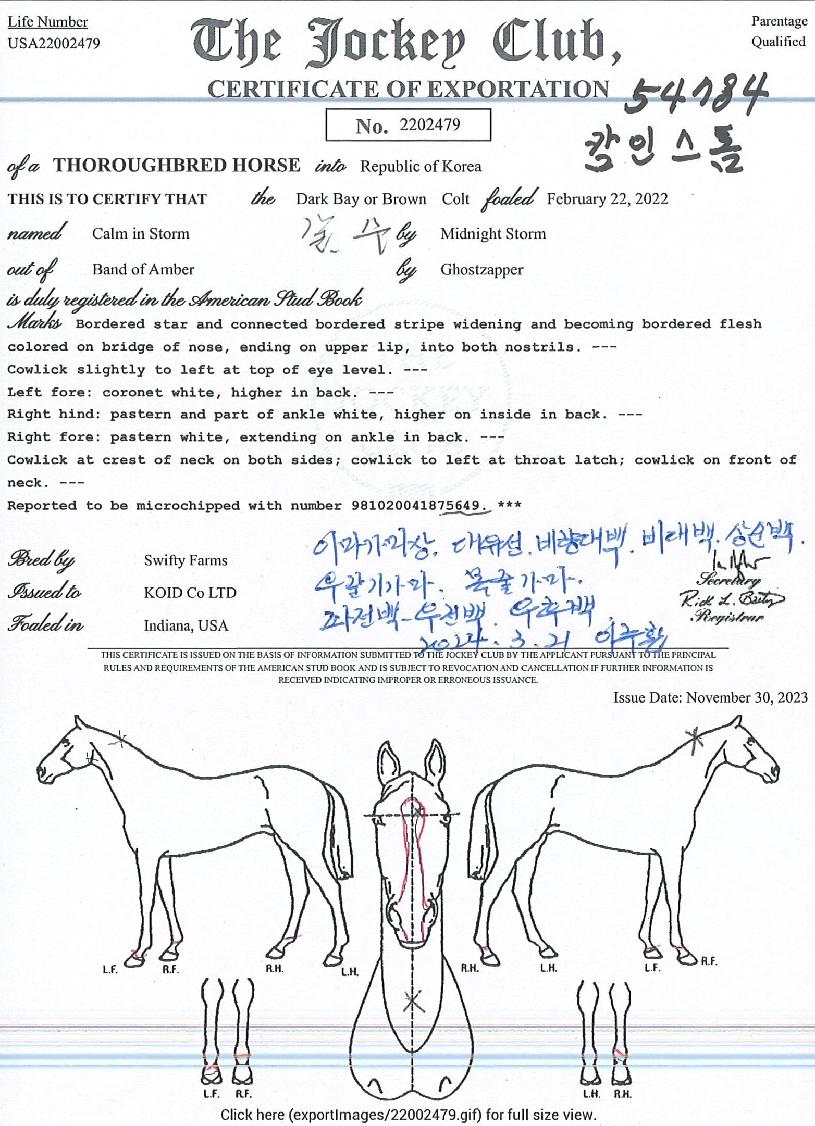 Life Number
USA22002479
The Jockey Club,
Parentage
Qualified
CERTIFICATE OF EXPORTATION
54784
No. 2202479
칼인스톰
of a THOROUGHBRED HORSE into Republic of Korea
THIS IS TO CERTIFY THAT the Dark Bay or Brown Colt foaled February 22, 2022
named Calm in Storm by Midnight Storm
out of Band of Amber by Ghostzapper
is duly registered in the American Stud Book
Marks Bordered star and connected bordered stripe widening and becoming bordered flesh
colored on bridge of nose, ending on upper lip, into both nostrils. ---
Cowlick slightly to left at top of eye level. ---
Left fore: coronet white, higher in back. ---
Right hind: pastern and part of ankle white, higher on inside in back. ---
Right fore: pastern white, extending on ankle in back. ---
Cowlick at crest of neck on both sides; cowlick to left at throat latch; cowlick on front of
neck. ---
Reported to be microchipped with number 981020041875649. ***
이마가마상. 대유성. 비량대백. 비대백. 상순백.
Bred by Swifty Farms
Secretary
Issued to KOID Co LTD
목줄가마.
Registrar
Foaled in Indiana, USA
좌전백-우전백. 우후백
2024. 3. 21
THIS CERTIFICATE IS ISSUED ON THE BASIS OF INFORMATION SUBMITTED TO THE JOCKEY CLUB BY THE APPLICANT PURSUANT TO THE PRINCIPAL
RULES AND REQUIREMENTS OF THE AMERICAN STUD BOOK AND IS SUBJECT TO REVOCATION AND CANCELLATION IF FURTHER INFORMATION IS
RECEIVED INDICATING IMPROPER OR ERRONEOUS ISSUANCE.
Issue Date: November 30, 2023
L.F. R.F. R.H. L.H. R.H. L.H. L.F. R.F.
L.F. R.F. L.H. R.H.
Click here (exportImages/22002479.gif) for full size view.